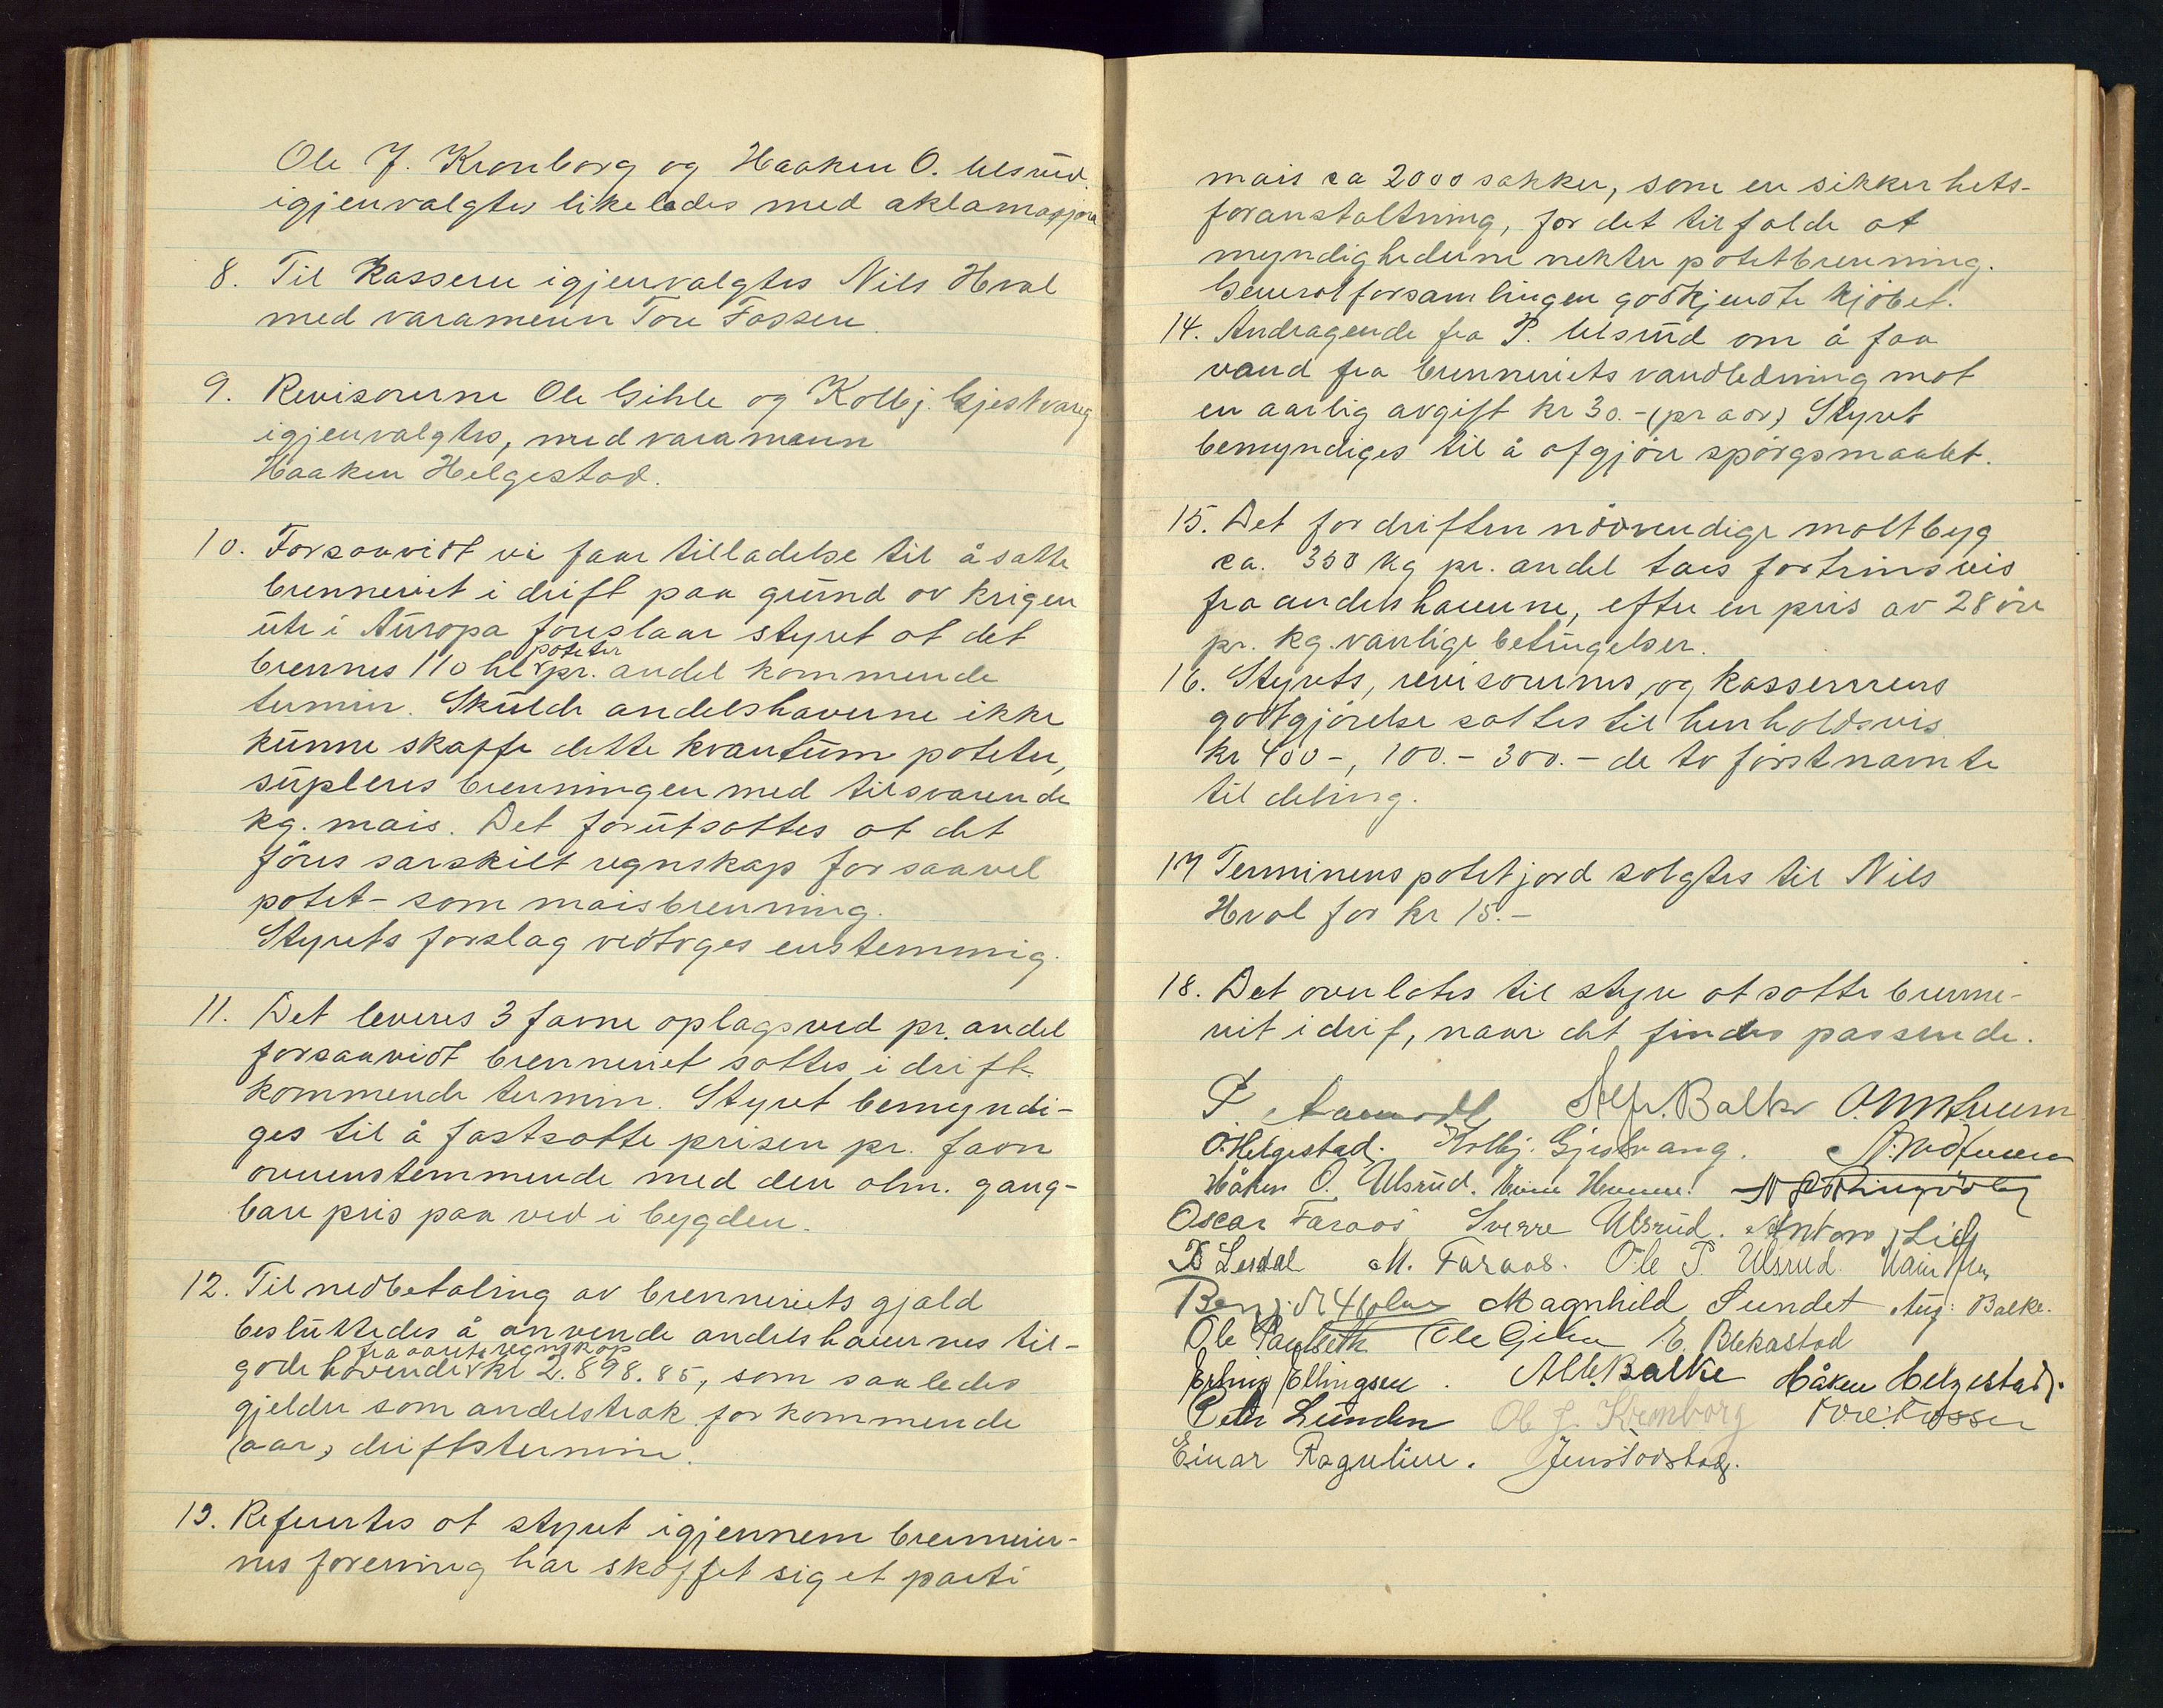 Ole J. Kronborg og Haaken O. Ulsrud
igjenvalgtes likeledes med aklamasjon
8. Til Kasserer igjenvalgtes Nils Hval
med varamenn Tore Fossen.
9. Revisorerne Ole Gihle og Kolbj. Gjestvang
igjenvalgtes, med varamann
Haaken Helgestad.
10. Forsaavidt vi faar tilladelse til å satte
brenneriet i drift paa grund av krigen
ute i Auropa foreslaar styret at det
poteter
brennes 110 hl pr. andel kommende
termin. Skulde andelshaverne ikke
kunne skaffe dette kvantum poteter,
supleres brenningen med tilsvarende
kg. mais. Det forutsattes at det
föres sarskilt regnskap for saavel
potet- som maisbrenning.
Styrets forslag vedtoges enstemmig.
11. Det leveres 3 favne oplagsved pr. andel
forsaavidt brenneriet sattes i drift
kommende termin. Styret bemyndi-
ges til å fastsatte prisen pr. favn
overenstemmende med den alm. gang-
bare pris paa ved i bygden.
12. Til nedbetaling av brenneriets gjald
besluttedes å anvende andelshavernes til-
fra aarets regnskap
gode havende kr 2.898.85, som saaledes
gjelder som andelstrak for kommende
(aar) driftstermin.
13. Refuertes at styret igjennem brennerier-
nes forening har skaffet sig et parti
mais ca 2000 sakker, som en sikkerhets-
foranstaltning, for det tilfalde at
myndighederne nekter potetbrenning.
Generalforsamlingen godkjendte kjöbet.
14. Andragende fra P. Ulsrud om å faa
vand fra brenneriets vandledning mot
en aarlig avgift kr 30.- (pr aar) Styret
bemyndiges til å afgjöre spörgsmaalet.
15. Det for driften nödvendige maltbyg
ca. 350 kg pr. andel taes fortrinsvis
fra andelshaverne, efter en pris av 28 öre
pr. kg. vanlige betingelser.
16. Styrets, revisorernes, og kassererens
godtgjörelse sattes til henholdsvis
kr 400-, 100.- 300.- de to förstnavnte
til deling.
17 Terminens potetjord solgtes til Nils
Hval for kr 15.-
18. Det overlates til styre at satte brenne-
riet i drif, naar det findes passende.
P Alfr. Balke
O. Helgestad. Kolbj. Gjestvang.
Håken O. Ulsrud.
Oscar Faraos Sverre Ulsrud. Anton Lie
Lerdal M. Faraos. Ole P. Ulsrud.
Magnhild Sundet Aug: Balke.
Ole Paulseth Ole Gihle E. Blekastad
Erling Ellingsen. Balke Håken Helgestad.
Petr Lunden Ole J. Kronborg Tore Fossen
Einar Ragnlien. Jens Todstad.